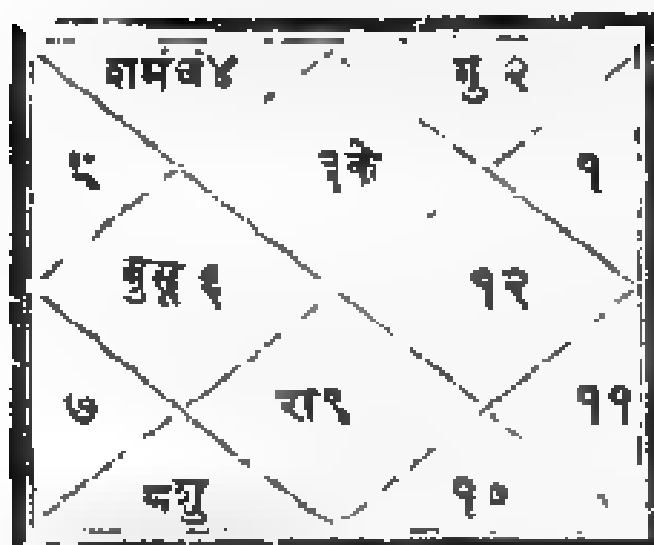 शमंचं४ गु २
५ ३के १
बुसू ६ १२
७ रा९ ११
८शु १०